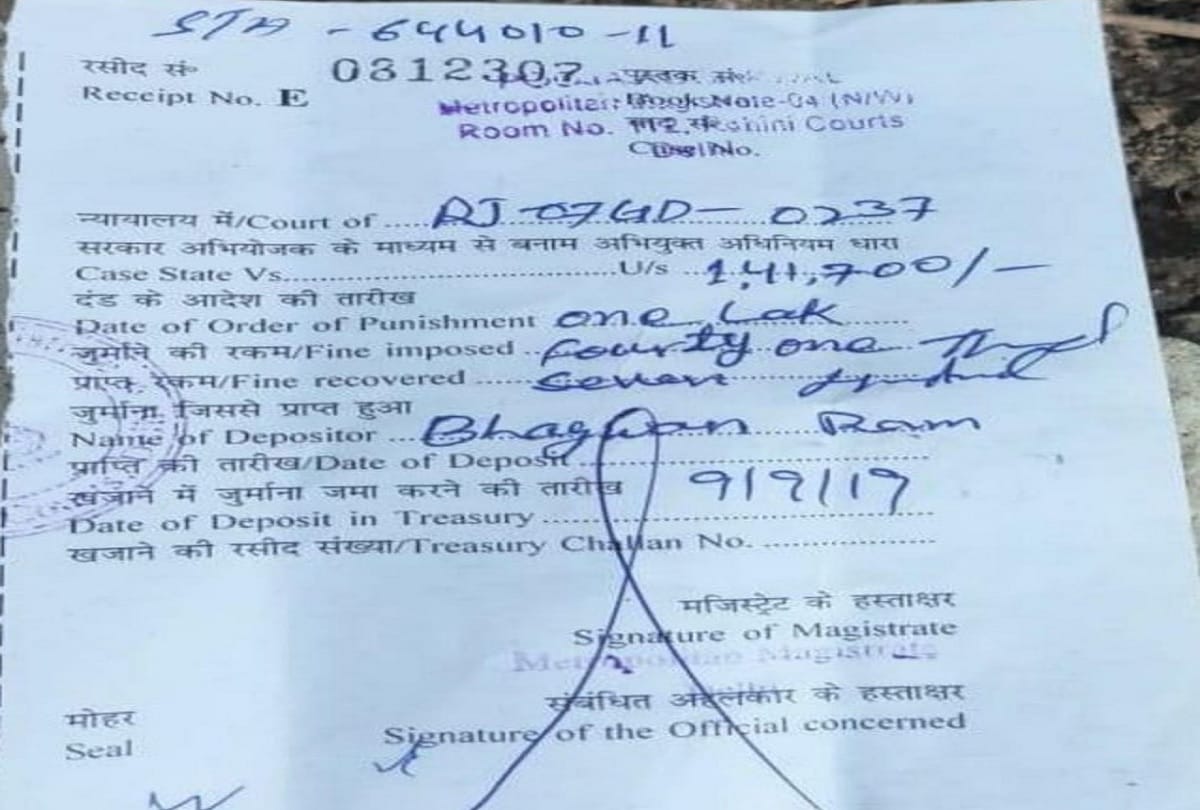 STA - 644010-11
रसीद सं० 0312307 पुस्तक सं०
Receipt No. E
Metropolitan
Room No. Rohini Courts
न्यायालय में/Court of ..... RJ-07GD- 0237
सरकार अभियोजक के माध्यम से बनाम अभियुक्त अधिनियम धारा
Case State Vs.............................................U/s .. 1,41,700/-
दंड के आदेश की तारीख
Date of Order of Punishment one Lak
जुर्माने की रकम/Fine imposed .. fourty one
प्राप्त रकम/Fine recovered ......
जुर्माना जिससे प्राप्त हुआ
Name of Depositor ... Bhagwan Ram
प्राप्ति की तारीख/Date of Deposit ..............................
खजाने में जुर्माना जमा करने की तारीख 9/9/19
Date of Deposit in Treasury ..............................
खजाने की रसीद संख्या/Treasury Challan No. ..................
मजिस्ट्रेट के हस्ताक्षर
Signature of Magistrate
Metropolitan Magistrate
संबंधित अहलकार के हस्ताक्षर
मोहर
Signature of the Official concerned
Seal